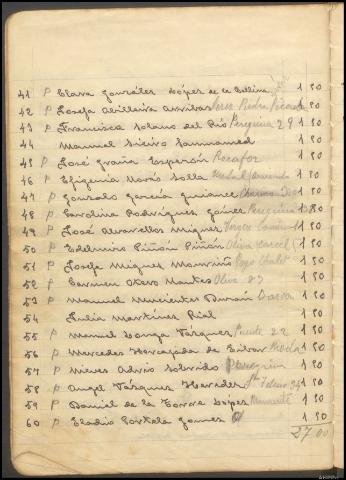 41 P Clara González López de la Collina 1 50
42 P Josefa Abilleira Arribas Piedra Picada 1 50
43 P Francisca Solano del Río Peregrina 29 1 50
44 Manuel Sieiro Sanmamed 1 50
45 P José Graña Casperón Recafor 1 50
46 P Efigenia Novás Solla 1 50
47 P Gonzalo García Guiance 1 50
48 P Carolina Rodríguez Gómez Peregrina 1 50
49 P José Abravelles Míguez 1 50
50 P Edelmiro Piñón Piñón Oliva 1 50
51 P Josefa Míguez Mouriño Chalet 1 50
52 P Carmen Otero Montes Oliva 23 1 50
53 P Manuel Muníentes Durán 1 50
54 Julia Martínez Rial 1 50
55 P Manuel Lonza Vázquez Puente 22 1 50
56 P Mercedes Horcajada de Eibar 1 50
57 P Nieves Adrio Sobrido Peregrina 1 50
58 P Angel Vázquez Heredes 1 50
59 P Daniel de la Torre López 1 50
60 P Eladio Portela Gomez 1 50
27 00